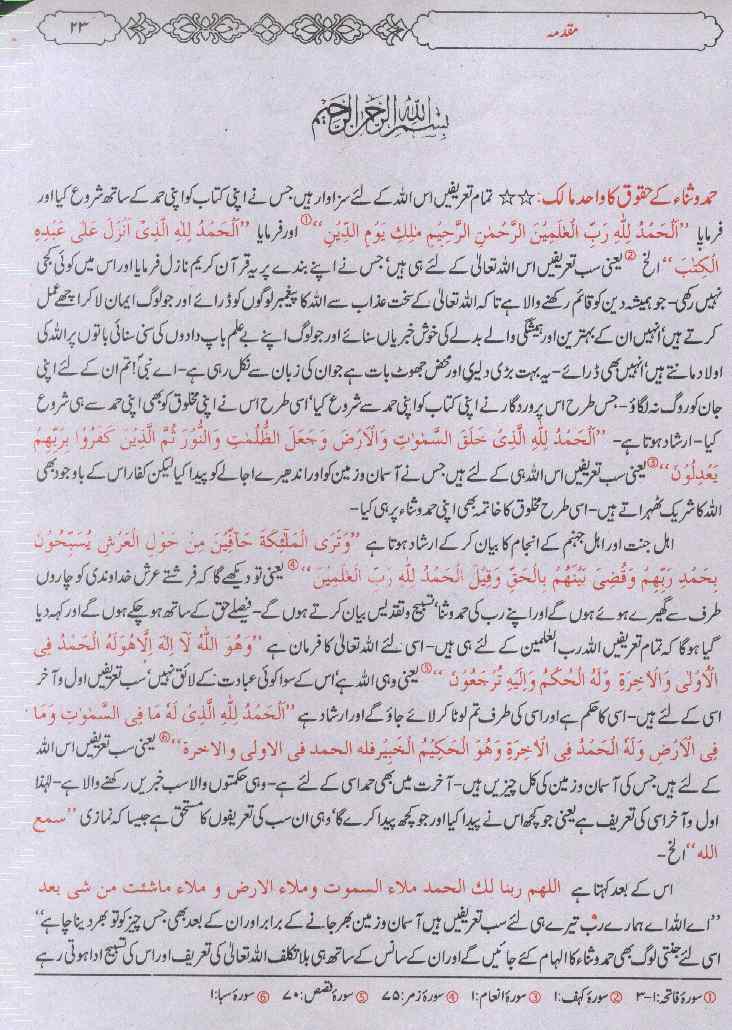 مقدمہ
۲۳
بسم اللہ الرحمن الرحیم
حمد وثناء کے حقوق کا واحد مالک: ☆☆ تمام تعریفیں اس اللہ کے لئے سزاوار ہیں جس نے اپنی کتاب کو اپنی حمد کے ساتھ شروع کیا اور
فرمایا ”اَلْحَمْدُ لِلّٰهِ رَبِّ الْعٰلَمِيْنَ الرَّحْمٰنِ الرَّحِيْمِ مٰلِكِ يَوْمِ الدِّيْنِ“① اور فرمایا ”اَلْحَمْدُ لِلّٰهِ الَّذِىْ اَنْزَلَ عَلٰى عَبْدِهِ
الْكِتٰبَ“ الخ ② یعنی سب تعریفیں اس اللہ تعالیٰ کے لئے ہی ہیں‘ جس نے اپنے بندے پر یہ قرآن کریم نازل فرمایا اور اس میں کوئی کجی
نہیں رکھی- جو ہمیشہ دین کو قائم رکھنے والا ہے تا کہ اللہ تعالیٰ کے سخت عذاب سے اللہ کا پیغمبر لوگوں کو ڈرائے اور جو لوگ ایمان لا کر اچھے عمل
کرتے ہیں‘ انہیں ان کے بہترین اور ہمیشگی والے بدلے کی خوش خبریاں سنائے اور جو لوگ اپنے بے علم باپ دادوں کی سنی سنائی باتوں پر اللہ کی
اولاد مانتے ہیں‘ انہیں بھی ڈرائے- یہ بہت بڑی دلیری اور محض جھوٹ بات ہے جو ان کی زبان سے نکل رہی ہے- اے نبیؐ! تم ان کے لئے اپنی
جان کو روگ نہ لگاؤ- جس طرح اس پروردگار نے اپنی کتاب کو اپنی حمد سے شروع کیا‘ اسی طرح اس نے اپنی مخلوق کو بھی اپنی حمد سے ہی شروع
کیا- ارشاد ہوتا ہے- ”اَلْحَمْدُ لِلّٰهِ الَّذِىْ خَلَقَ السَّمٰوٰتِ وَالْاَرْضَ وَجَعَلَ الظُّلُمٰتِ وَالنُّوْرَ ثُمَّ الَّذِيْنَ كَفَرُوْا بِرَبِّهِمْ
يَعْدِلُوْنَ“③ یعنی سب تعریفیں اس اللہ ہی کے لئے ہیں جس نے آسمان و زمین کو اور اندھیرے اجالے کو پیدا کیا لیکن کفار اس کے باوجود بھی
اللہ کا شریک ٹھہراتے ہیں- اسی طرح مخلوق کا خاتمہ بھی اپنی حمد وثناء پر ہی کیا-
اہل جنت اور اہل جہنم کے انجام کا بیان کر کے ارشاد ہوتا ہے ”وَتَرَى الْمَلٰٓئِكَةَ حَآفِّيْنَ مِنْ حَوْلِ الْعَرْشِ يُسَبِّحُوْنَ
بِحَمْدِ رَبِّهِمْ وَقُضِىَ بَيْنَهُمْ بِالْحَقِّ وَقِيْلَ الْحَمْدُ لِلّٰهِ رَبِّ الْعٰلَمِيْنَ“④ یعنی تو دیکھے گا کہ فرشتے عرش خداوندی کو چاروں
طرف سے گھیرے ہوئے ہوں گے اور اپنے رب کی حمد وثنا‘ تسبیح و تقدیس بیان کرتے ہوں گے- فیصلے حق کے ساتھ ہو چکے ہوں گے اور کہہ دیا
گیا ہو گا کہ تمام تعریفیں اللہ رب العلمین کے لئے ہی ہیں- اسی لئے اللہ تعالیٰ کا فرمان ہے ”وَهُوَ اللّٰهُ لَآ اِلٰهَ اِلَّا هُوَ لَهُ الْحَمْدُ فِى
الْاُوْلٰى وَالْاٰخِرَةِ وَلَهُ الْحُكْمُ وَاِلَيْهِ تُرْجَعُوْنَ“⑤ یعنی وہی اللہ ہے‘ اس کے سوا کوئی عبادت کے لائق نہیں‘ سب تعریفیں اول و آخر
اسی کے لئے ہیں- اسی کا حکم ہے اور اسی کی طرف تم لوٹا کر لائے جاؤ گے اور ارشاد ہے ”اَلْحَمْدُ لِلّٰهِ الَّذِىْ لَهٗ مَا فِى السَّمٰوٰتِ وَمَا
فِى الْاَرْضِ وَلَهُ الْحَمْدُ فِى الْاٰخِرَةِ وَهُوَ الْحَكِيْمُ الْخَبِيْرُ فله الحمد فى الاولى والاخرة“⑥ یعنی سب تعریفیں اس اللہ
کے لئے ہیں جس کی آسمان و زمین کی کل چیزیں ہیں- آخرت میں بھی حمد اسی کے لئے ہے- وہی حکمتوں والا سب خبریں رکھنے والا ہے- لہٰذا
اول و آخر اسی کی تعریف ہے یعنی جو کچھ اس نے پیدا کیا اور جو کچھ پیدا کرے گا‘ وہی ان سب کی تعریفوں کا مستحق ہے جیسا کہ نمازی ”سمع
الله“ الخ-
اس کے بعد کہتا ہے اللهم ربنا لك الحمد ملاء السموت وملاء الارض و ملاء ماشئت من شى بعد
”اے اللہ اے ہمارے رب تیرے ہی لئے سب تعریفیں ہیں آسمان و زمین بھر جانے کے برابر اور ان کے بعد بھی جس چیز کو تو بھر دینا چاہے“
اسی لئے جنتی لوگ بھی حمد وثناء کا الہام کئے جائیں گے اور ان کے سانس کے ساتھ ہی بلا تکلف اللہ تعالیٰ کی تعریف اور اس کی تسبیح ادا ہوتی رہے
① سورۂ فاتحہ: ۱-۳ ② سورۂ کہف: ۱ ③ سورۂ انعام: ۱ ④ سورۂ زمر: ۷۵ ⑤ سورۂ قصص: ۷۰ ⑥ سورۂ سبا: ۱